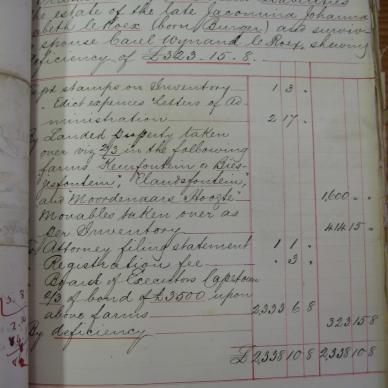 the estate of the late Jacomina Johanna
abeth le Roex (born Burger) and surviv-
spouse Carel Wynand le Roex, shewing
deficiency of £323.15.8.
pd stamps on Inventory 1 3 "
" Edict expences Letters of Ad
ministration 2 17 "
By Landed Property taken
over viz 2/3 in the following
farms
and Moordenaars Hoogte" 1,600 " "
Movables taken over as
per Inventory 414 15 "
To Attorney filing statement 1 1 "
Registration fee " 3 "
Board of Executors Capetown
2/3 of bond of £3500 upon
above farms 2,333 6 8
By deficiency 323 15 8
£ 2,338 10 8 2,338 10 8